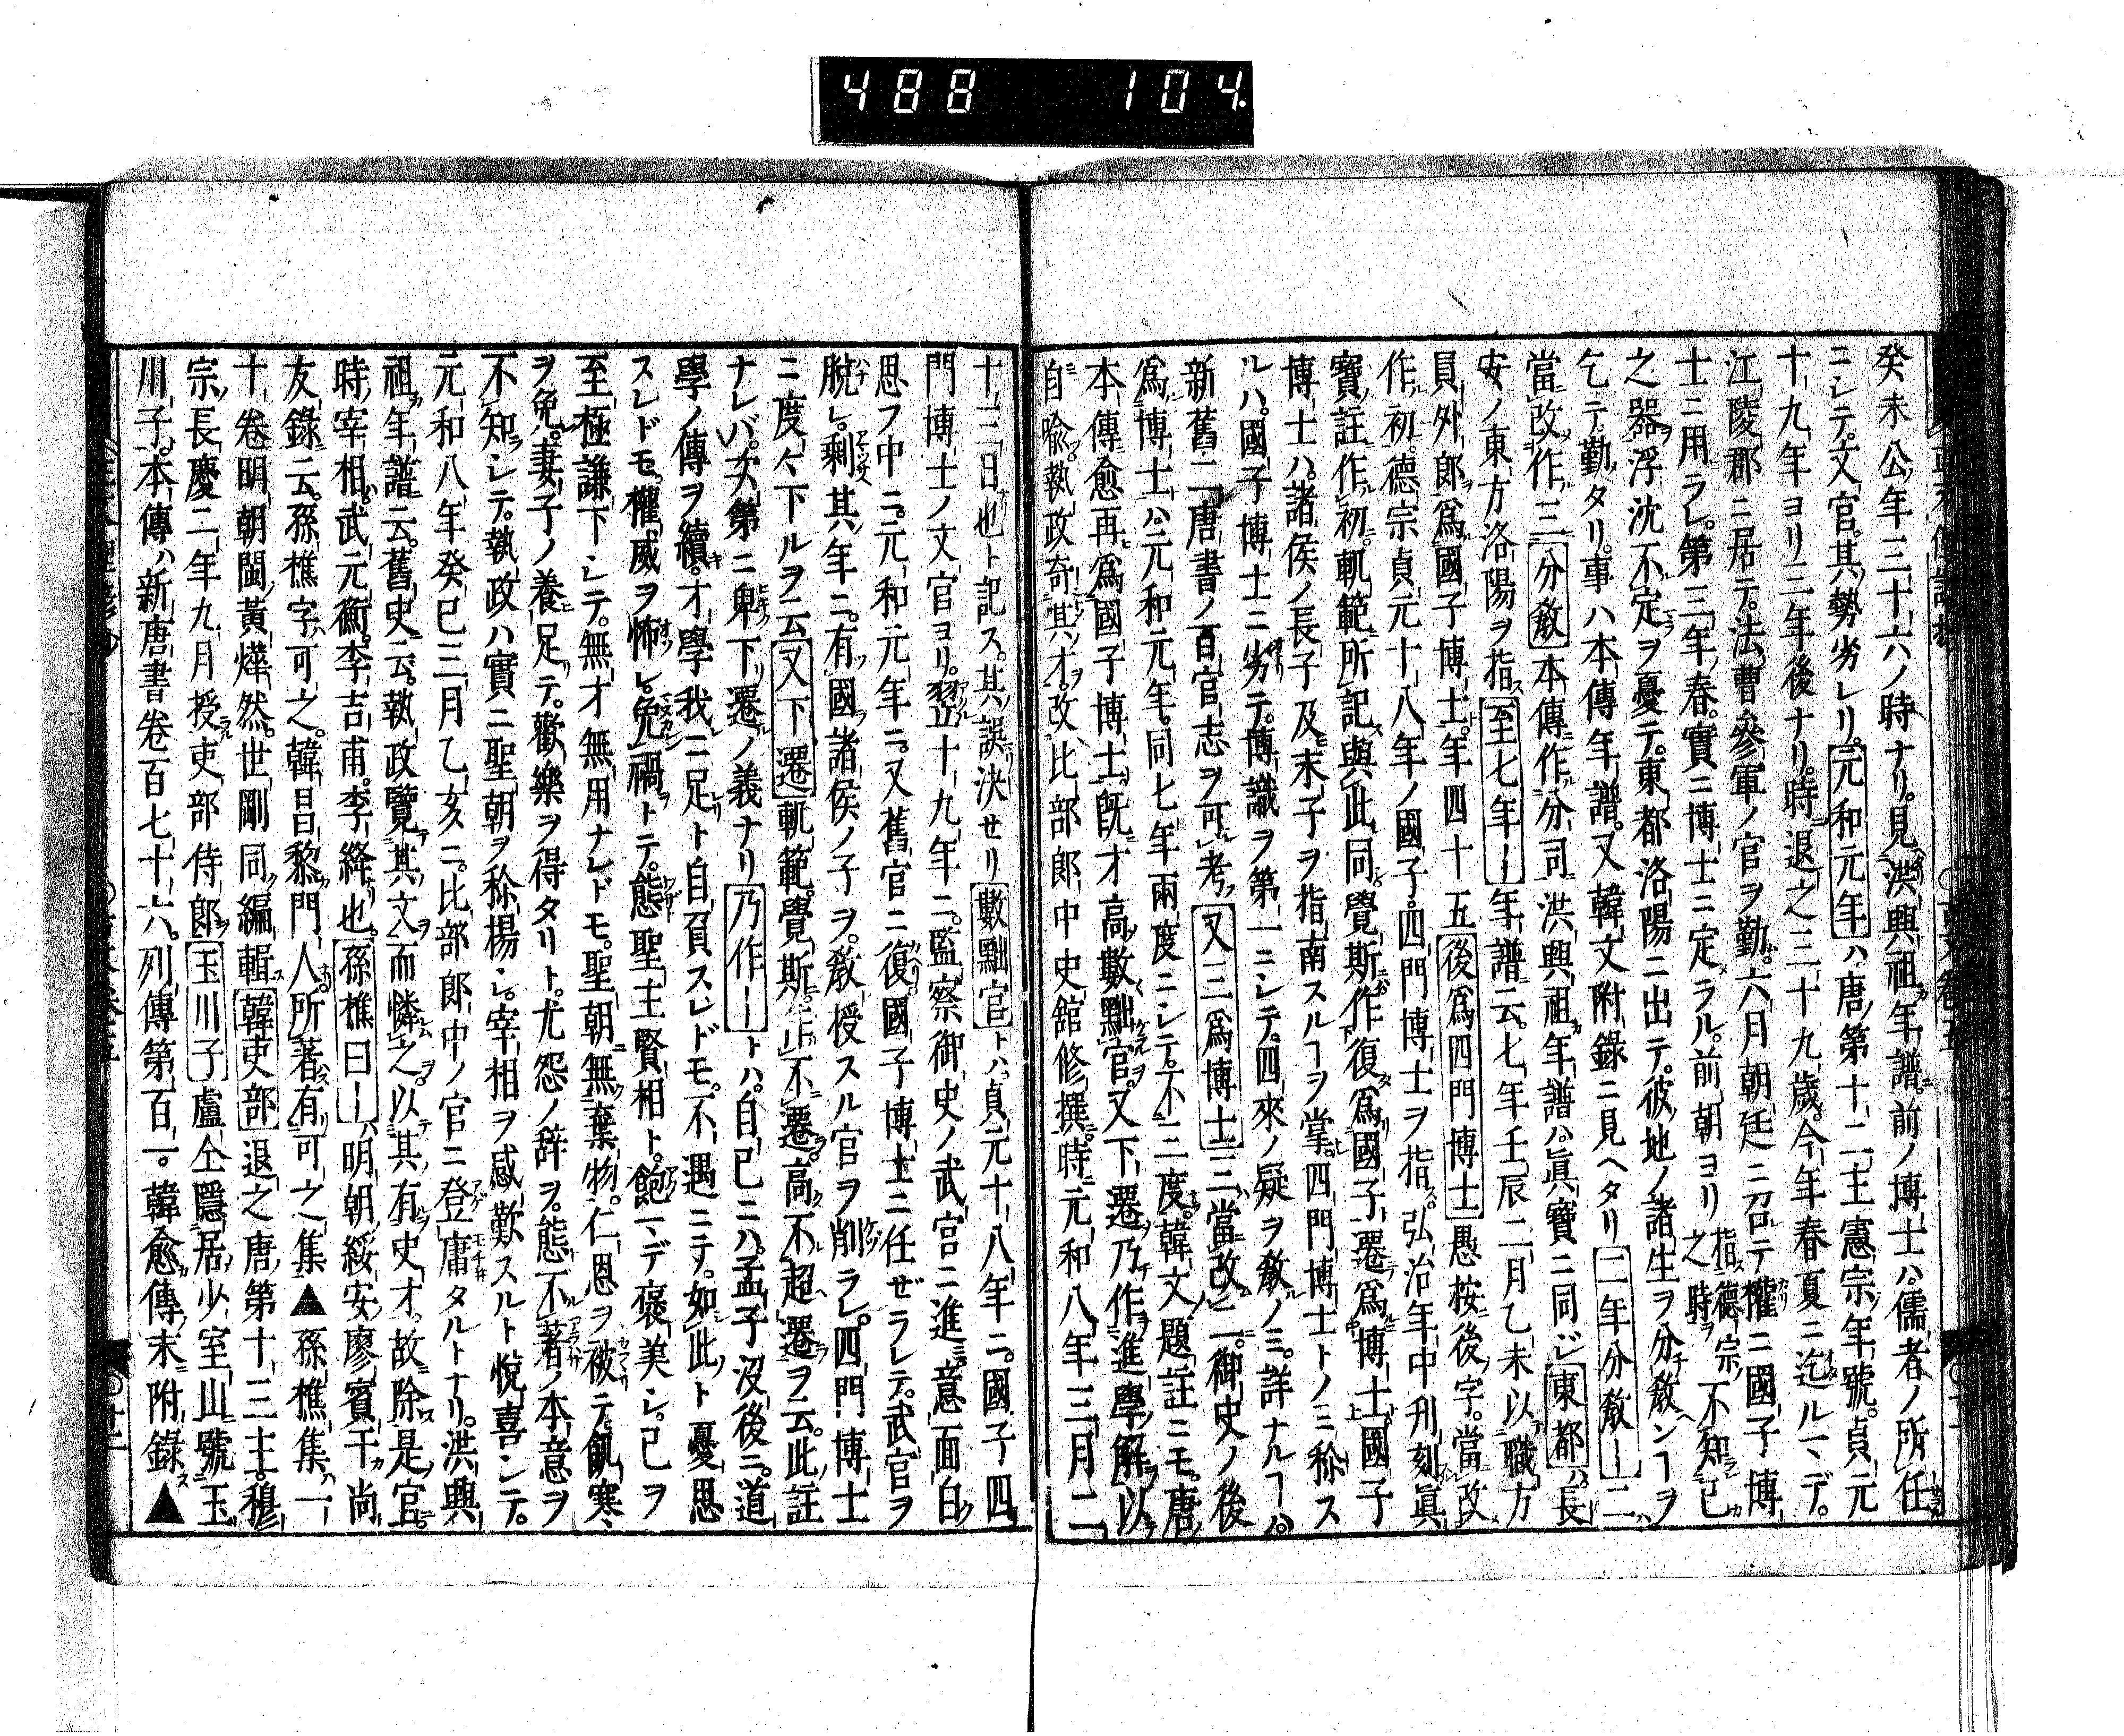 488 104.
癸未公年三十六ノ時ナリ。見洪興祖年譜。前ノ博士ハ儒者ノ所任
ニシテ。文官。其勢劣レリ。元和元年ハ唐第十二主憲宗年號。貞元
十九年ヨリ三年後ナリ。時退之三十九歲。今年春夏ニ迄ルマデ。
江陵郡ニ居テ。法曹參軍ノ官ヲ勤。六月朝廷ニ召テ權ニ國子博
士ニ用ラレ。第三年春。實ニ博士ニ定ラル。前朝ヨリ指德宗之時不知己
之器。浮沈不定ヲ憂テ。東都洛陽ニ出テ。彼地ノ諸生ヲ分敎ンヿヲ
乞テ。勤タリ。事ハ本傳年譜。又韓文附錄ニ見ヘタリ二年分敎〡二
當改作三分敎本傳作分司洪興祖年譜ハ。眞寶ニ同ジ東都ハ長
安ノ東方洛陽ヲ指至七年〡年譜云。七年壬辰二月乙未以職方
員外郎爲國子博士。年四十五後爲四門博士愚按後字。當改
作初。德宗貞元十八年ノ國子。四門博士ヲ指。弘治年中刋刻眞
寶註作初。軌範所記與此同。覺斯作復爲國子。遷爲博士。國子
博士ハ。諸侯ノ長子及末子ヲ指南スルヿヲ掌。四門博士トノミ稱ス
ルハ。國子博士ニ劣テ。博識ヲ第一ニシテ。四來ノ疑ヲ敎ノミ。詳ナルヿハ。
新舊二唐書ノ百官志ヲ可考又三爲博士三當改二。御史ノ後
爲博士ハ元和元年。同七年兩度ニシテ。不三度。韓文題註ニモ。唐
本傳愈再爲國子博士。旣才高數黜官。又下遷。乃作進學解以
自喩。執政奇其才。改比部郎中史舘修撰。時元和八年三月二
十二日也ト記ス。其誤決セリ數黜官トハ貞元十八年ニ。國子四
門博士ノ文官ヨリ。翌十九年ニ。監察御史ノ武官ニ進。意面白
思フ中ニ。元和元年ニ。又舊官ニ復。國子博士ニ任ゼラレテ。武官ヲ
脫レ。剩其年ニ。有國諸侯ノ子ヲ。敎授スル官ヲ削ラレ。四門博士
ニ度々下ルヲ云又下遷軌範。覺斯。作不遷。高不超遷ヲ云。此註
ナレバ。次第ニ卑下遷ノ義ナリ乃作〡トハ。自己ニハ。孟子沒後ニ。道
學ノ傳ヲ續。才學我ニ足ト自負スレドモ。不遇ニテ。如此ト憂思
スレドモ。權威ヲ怖レ。免禍トテ。態聖主賢相ト。飽マデ褒美シ。己ヲ
至極謙下シテ。無才無用ナレドモ。聖朝無棄物。仁恩ヲ被テ。飢寒
ヲ免。妻子ノ養足テ。歡樂ヲ得タリト。尤怨ノ辞ヲ。態不著。本意ヲ
不知シテ。執政ハ實ニ聖朝ヲ稱揚シ。宰相ヲ感歎スルト悅喜シテ。
元和八年癸巳三月乙亥ニ。比部郎中ノ官ニ登庸タルトナリ。洪興
祖年譜云。舊史云。執政覽其文而憐之。以其有史才。故除是官。
時宰相。武元衡。李吉甫。李絳也。孫樵曰〡ハ明朝綏安廖賓于尚
友錄云。孫樵字可之。韓昌黎門人。所著有可之集▲孫樵集ハ一
十卷明朝閩黃燁然。世剛同編輯韓吏部退之唐第十三主。穆
宗。長慶二年九月授吏部侍郎玉川子盧仝隱居少室山號玉
川子。本傳ハ新唐書卷百七十六。列傳第百一。韓愈傳末附錄▲